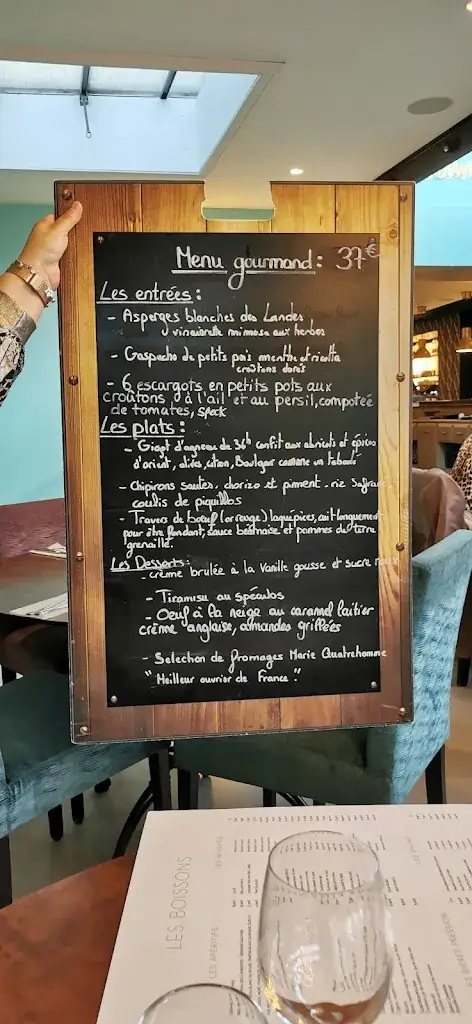 Menu gourmand: 37€
Les entrées:
- Asperges blanches des Landes
vinaigrette mimosa aux herbes
- Gaspacho de petits pois menthe et ricotta
croûtons dorés
- 6 escargots en petits pots aux
croûtons, à l'ail et au persil, compotée
de tomates, speck
Les plats:
- Gigot d'agneau de 36h confit aux abricots et épices
d'orient, olives, citron, Boulgour comme un taboulé
- Chipirons sautés, chorizo et piment - riz Safrané
coulis de piquillos
- Travers de bœuf (or rouge) laqué épices, cuit longuement
pour être fondant, sauce béarnaise et pommes de terre
grenaille.
Les Desserts:
- crème brulée à la Vanille gousse et sucre roux
- Tiramisu au spéculos
- Oeuf à la neige au caramel laitier
crème anglaise, amandes grillées
- Selection de fromages Marie Quatrehomme
"Meilleur ouvrier de France"
LES BOISSONS
LES APÉRITIFS